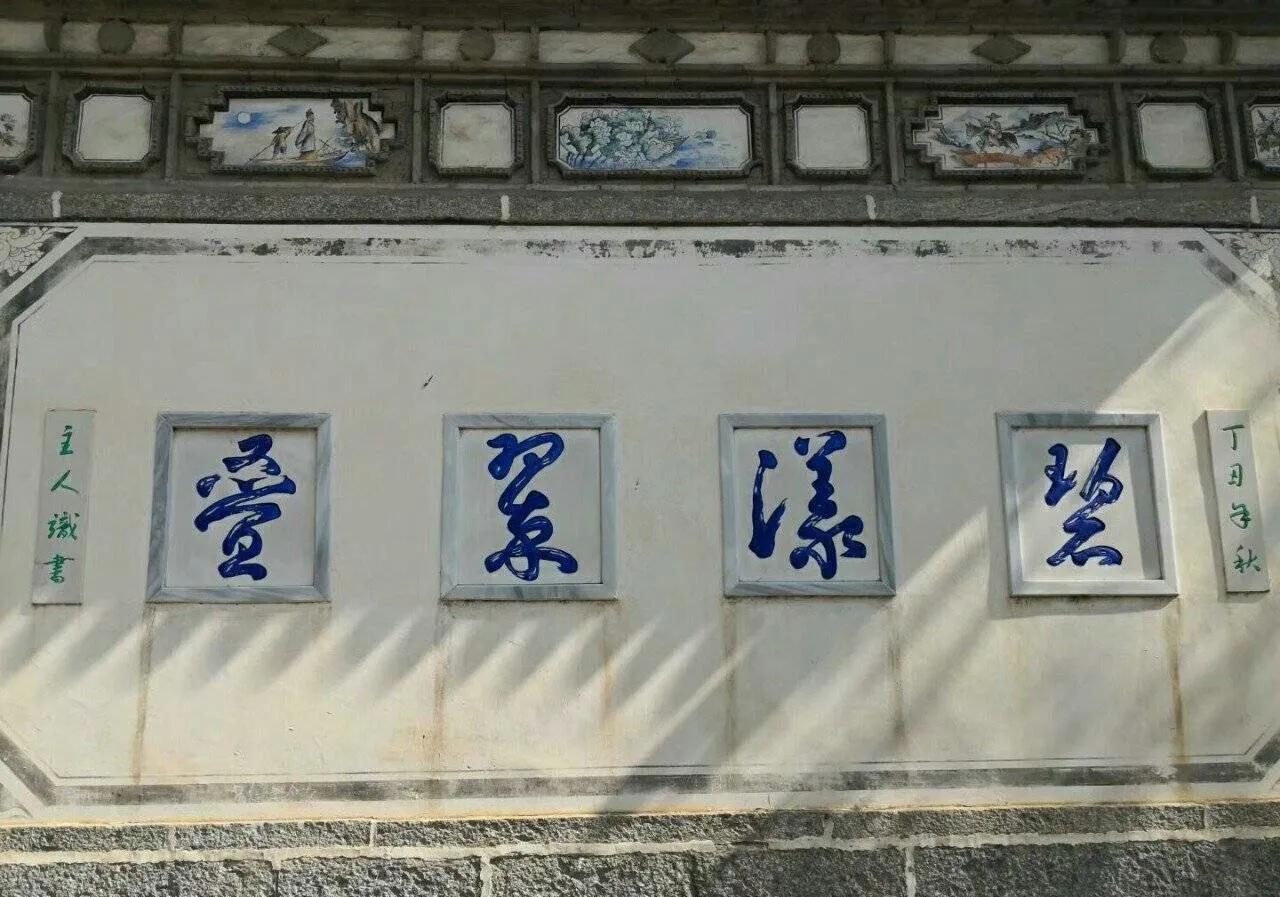 丁丑年秋
碧漾翠疊
主人識書